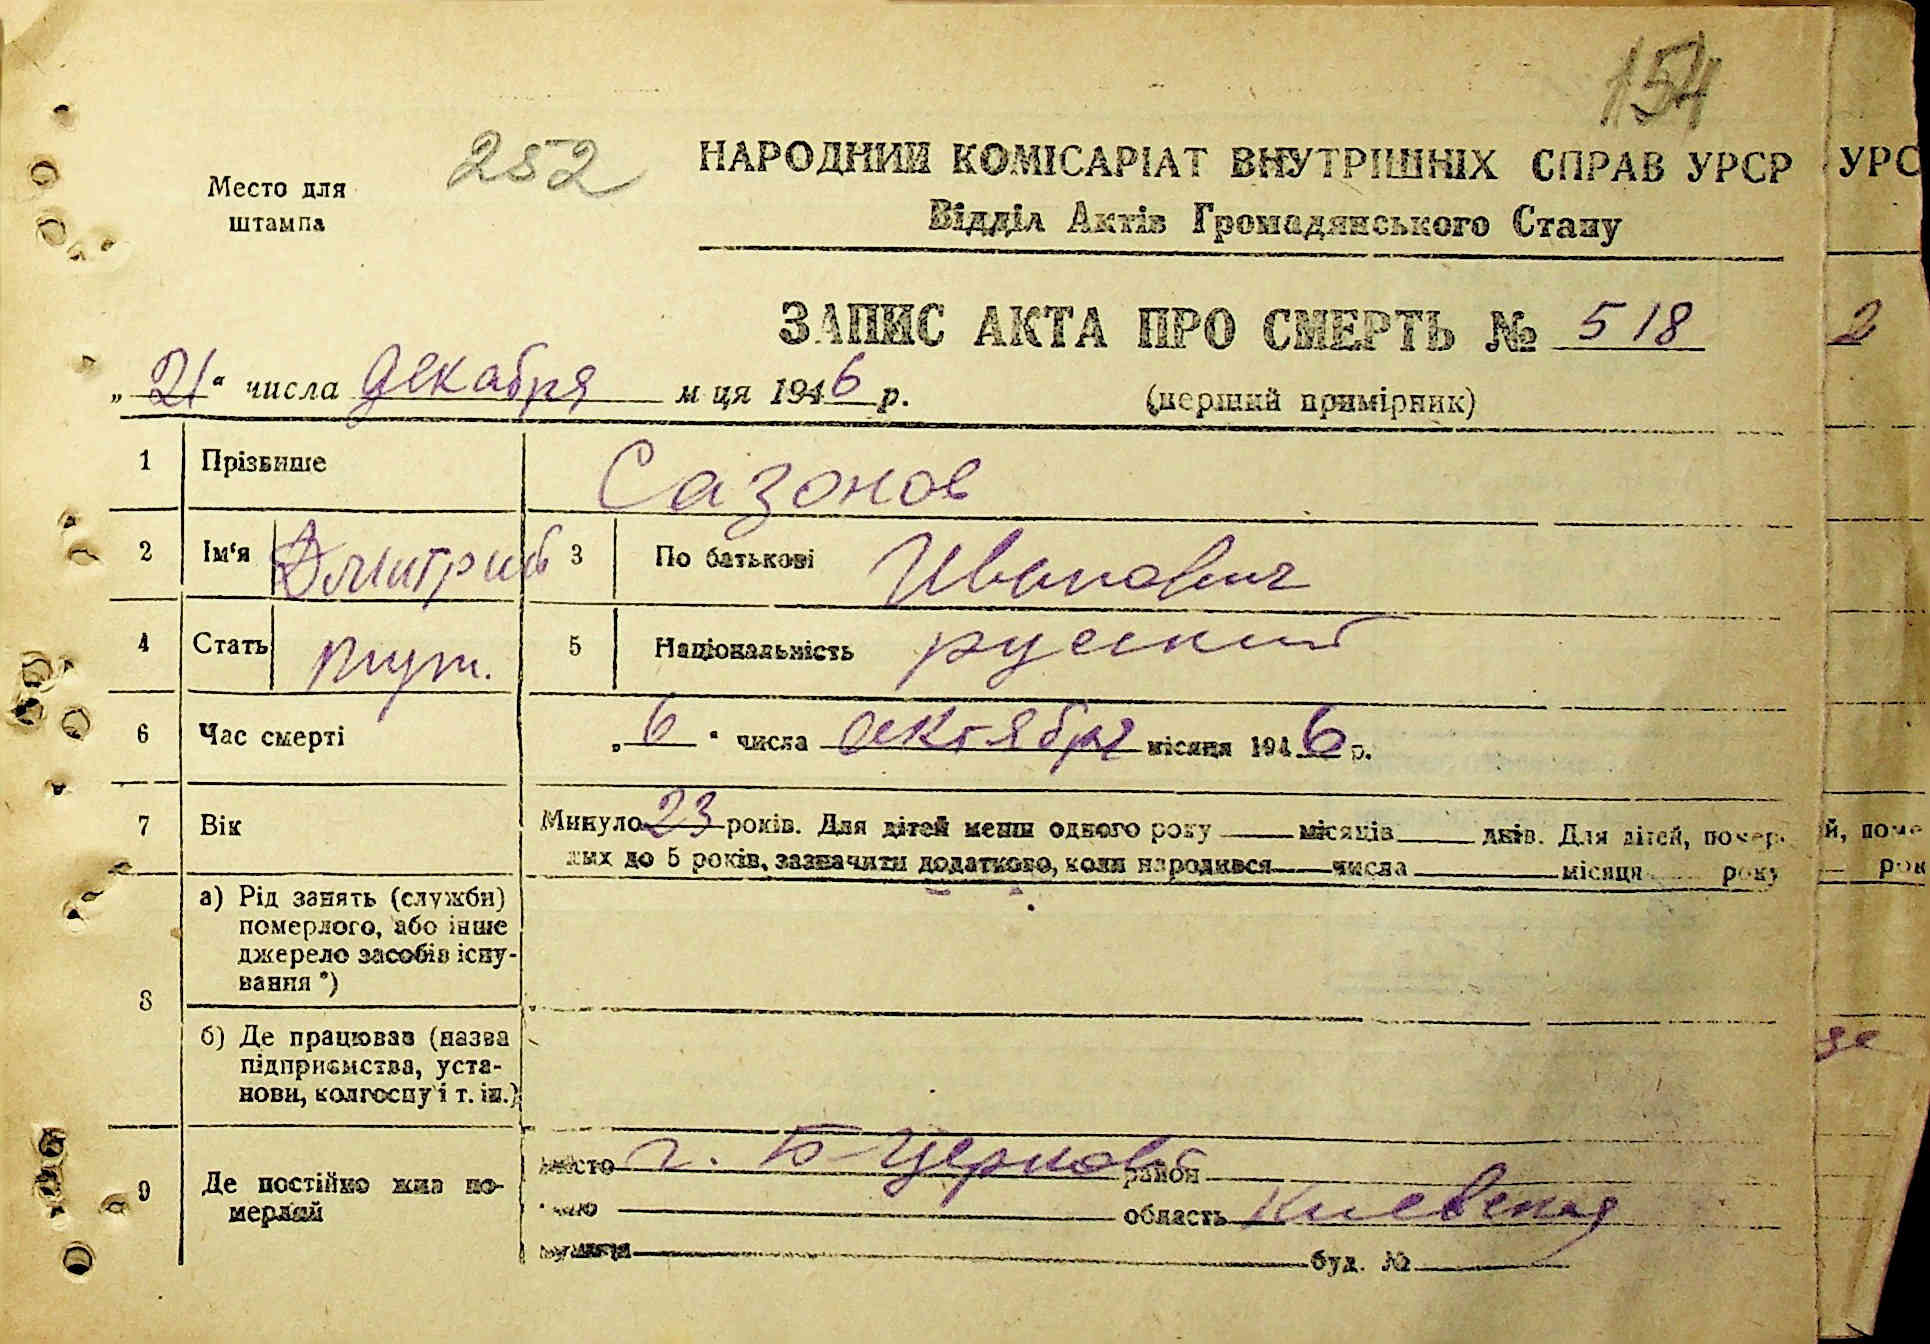 154
252
Место для
штампа
НАРОДНИЙ КОМІСАРІАТ ВНУТРІШНІХ СПРАВ УРСР
УРС
Відділ Актів Громадянського Стану
ЗАПИС АКТА ПРО СМЕРТЬ № 518
2
„21“ числа декабря м ця 1946 р.
(перший примірник)
1 Прізвище Сазонов
2 Ім‘я Дмитрий 3 По батькові Иванович
4 Стать муж. 5 Національність русский
6 Час смерті „6“ числа октября місяця 1946 р.
7 Вік Минуло 23 років. Для дітей менш одного року місяців днів. Для дітей, помер-
й, поме
лых до 5 років, зазначити додатково, коли народився числа місяця року
рок
8 а) Рід занять (служби)
померлого, або інше
джерело засобів існу-
вання *)
б) Де працював (назва
підприємства, уста-
нови, колгоспу і т. ін.)
9 Де постійно жив по-
мерлий
місто г. Б-Церковь район
область Киевская
вулиця буд. №